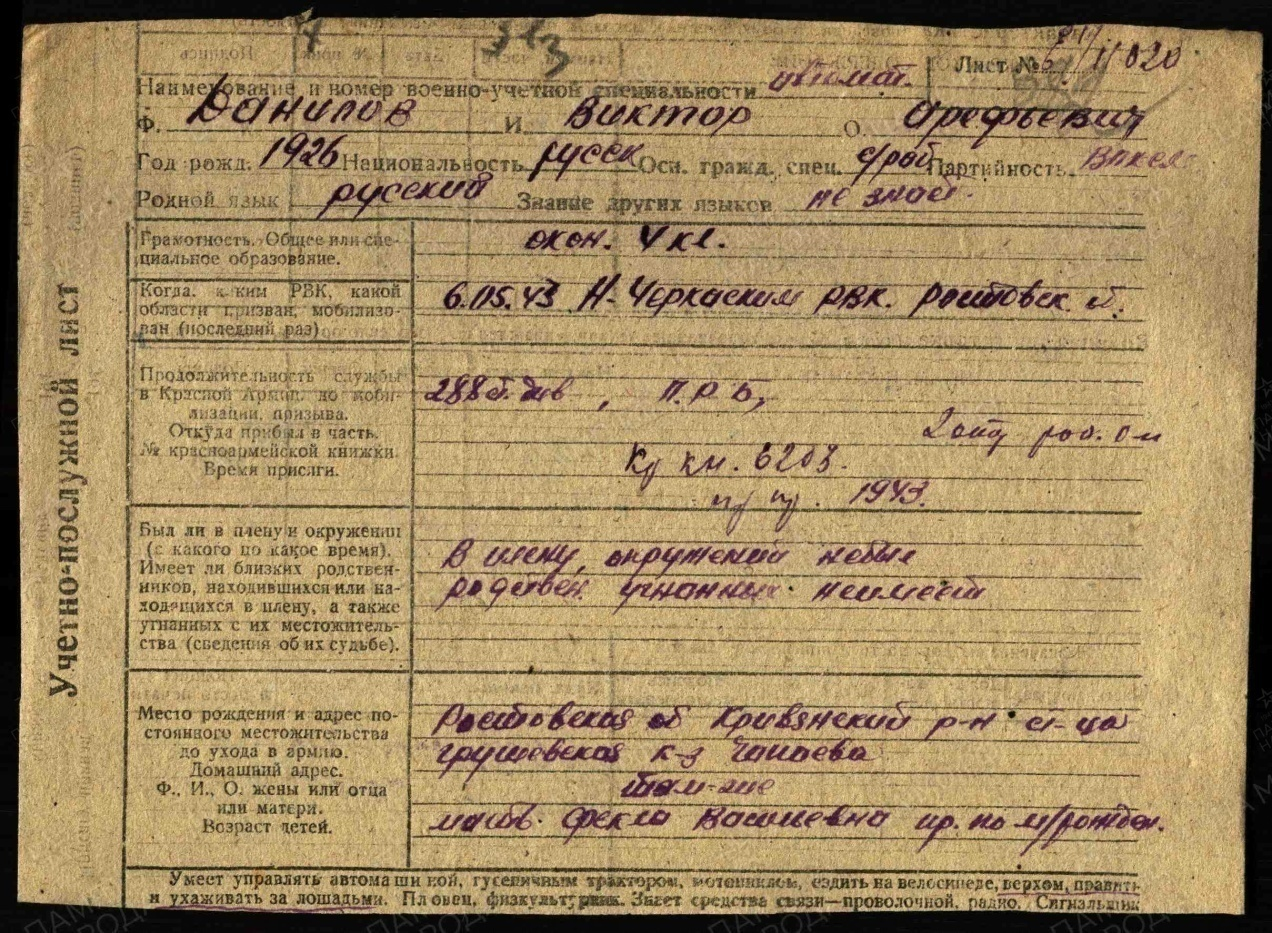 Лист №
020
Наименование и номер военно-учетной специальности автомат.
Ф. Данилов И. Виктор О. Арефьевич
Год рожд. 1926 Национальность русск Осн. гражд. спец. с/раб Партийность
Родной язык русский Знание других языков не знает.
Учетно-послужной лист
Грамотность. Общее или специальное образование.
окон. 4 кл.
Когда, каким РВК, какой
области призван, мобилизо-
ван (последний раз)
6.05.43 Н-Черкаским РВК. Ростовск. об.
Продолжительность службы
в Красной Армии до моби-
лизации, призыва.
Откуда прибыл в часть.
№ красноармейской книжки.
Время присяги.
288
Кр кн. 6203.
пр 1943.
Был ли в плену и окружении
(с какого по какое время).
Имеет ли близких родствен-
ников, находившихся или на-
ходящихся в плену, а также
угнанных с их местожитель-
ства (сведения об их судьбе).
В плену, окружений небыл
родствен. угнанных неимеет
Место рождения и адрес по-
стоянного местожительства
до ухода в армию.
Домашний адрес.
Ф., И., О. жены или отца
или матери.
Возраст детей.
Ростовская об Кривянский р-н ст-ца
грушевская к-з Чапаева
там-же
мать. Фекла Васильевна пр. по м/рожден.
Умеет управлять автомашиной, гусеничным трактором, мотоциклом, ездить на велосипеде, верхом, править
и ухаживать за лошадьми. Пловец, физкультурник. Знает средства связи—проволочной, радио. Сигнальщик